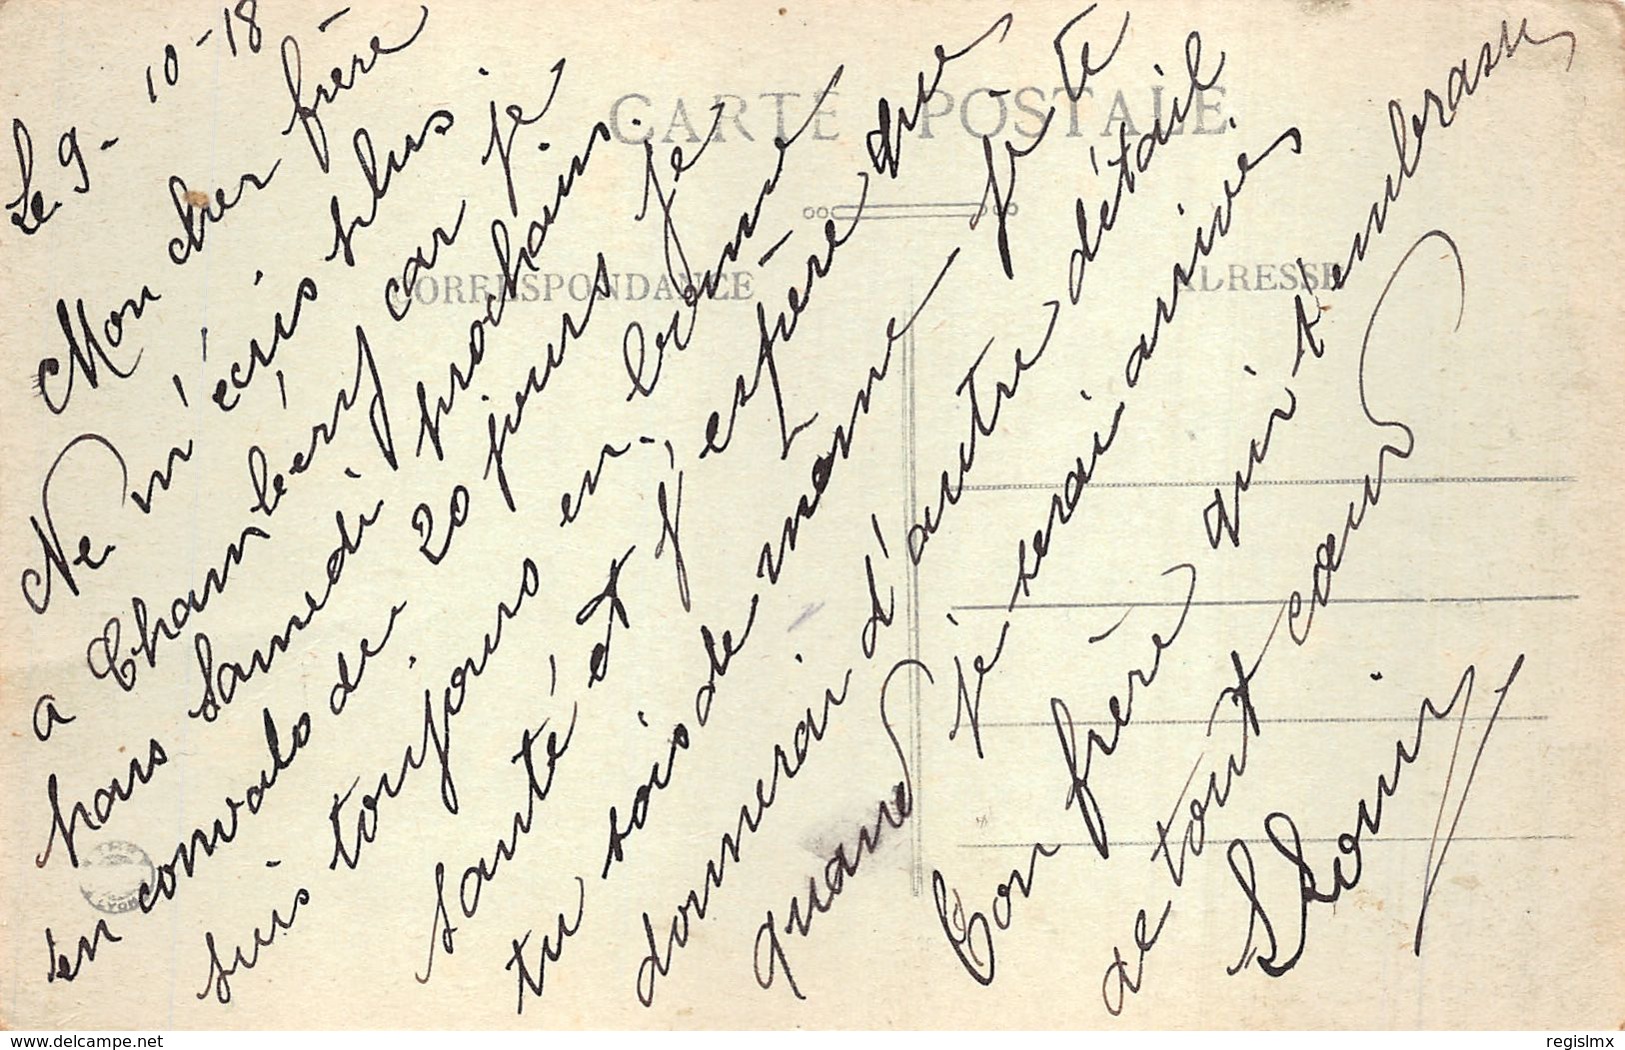 Le 9-10-18
Mon cher frère
Ne m'écris plus
a Chambéry car je
pars Samedi prochain.
en convalo de 20 jours je
suis toujours en bonne
santé et j'espère que
tu sois de même
donnerai d'autre détail
quand je serai arrivé
Ton frère qui t'embrasse
de tout cœur
CARTE POSTALE
CORRESPONDANCE
ADRESSE
delcampe.net
regislmx